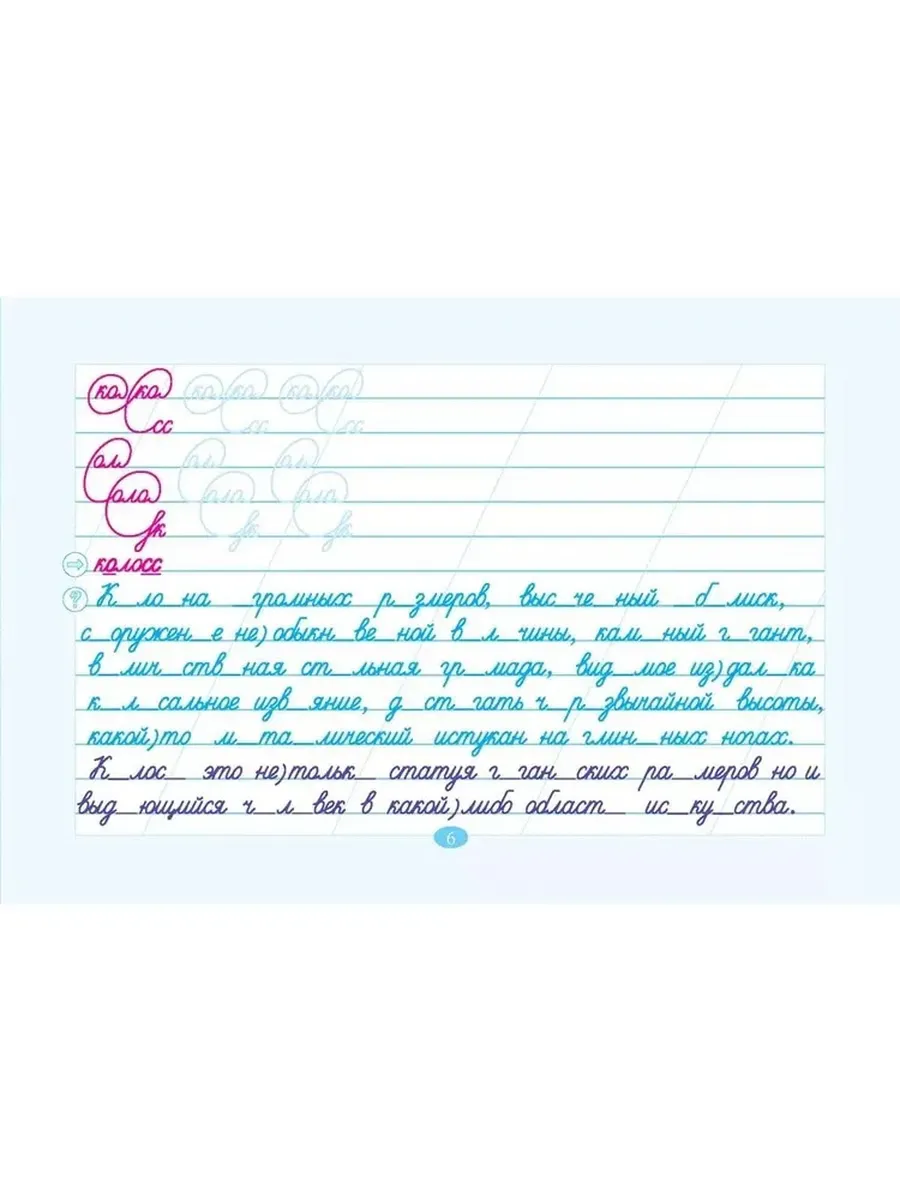 ка ка ка ка ка ка
сс сс сс
ал ал ал
ала ала ала
зк зк зк
⇨ колосс
? К_ло_на _громных р_змеров, выс_че_ный _б_лиск,
с_оружен_е не)обыкн_ве_ной в_л_чины, кам_нный г_гант,
в_лич_ств_ная ст_льная гр_мада, вид_мое из)дал_ка
к_л_сальное изв_яние, д_ст_гать ч_р_звычайной высоты,
какой)то м_та_лический истукан на глин_ных ногах.
К_лос_ это не)тольк_ статуя г_ган_ских ра_меров но и
выд_ющийся ч_л_век в какой)либо област_ ис_ку_ства.
6